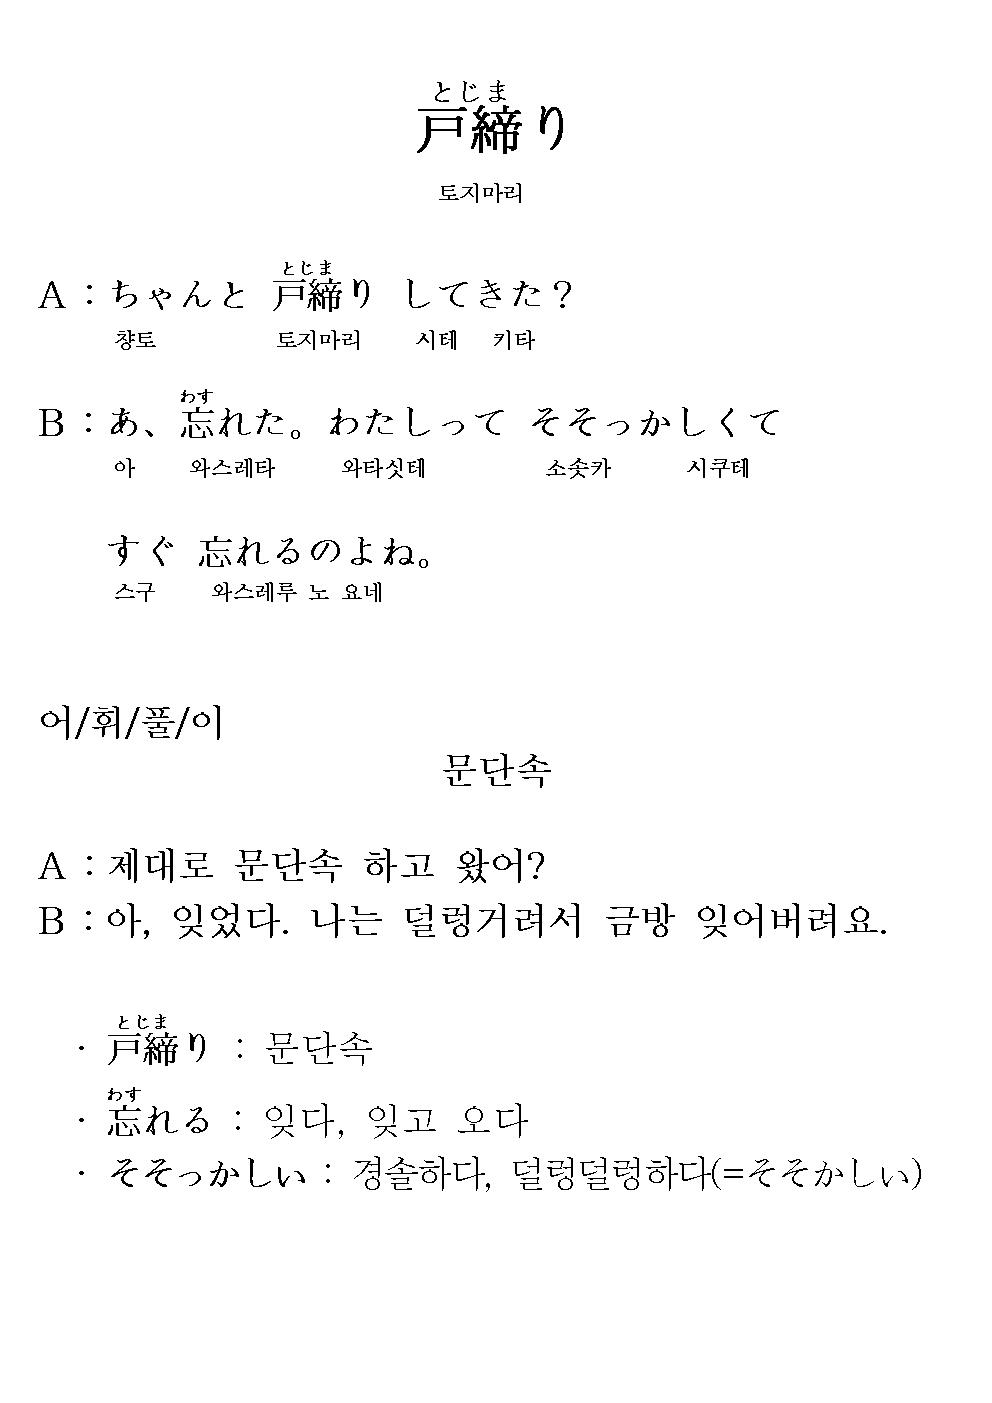 とじま
戸締り
토지마리
とじま
A : ちゃんと 戸締り してきた？
챵토 토지마리 시테 키타
わす
B : あ、忘れた。わたしって そそっかしくて
아 와스레타 와타싯테 소솟카 시쿠테
すぐ 忘れるのよね。
스구 와스레루 노 요네
어/휘/풀/이
문단속
A : 제대로 문단속 하고 왔어?
B : 아, 잊었다. 나는 덜렁거려서 금방 잊어버려요.
とじま
· 戸締り : 문단속
わす
· 忘れる : 잊다, 잊고 오다
· そそっかしい : 경솔하다, 덜렁덜렁하다(=そそかしい)